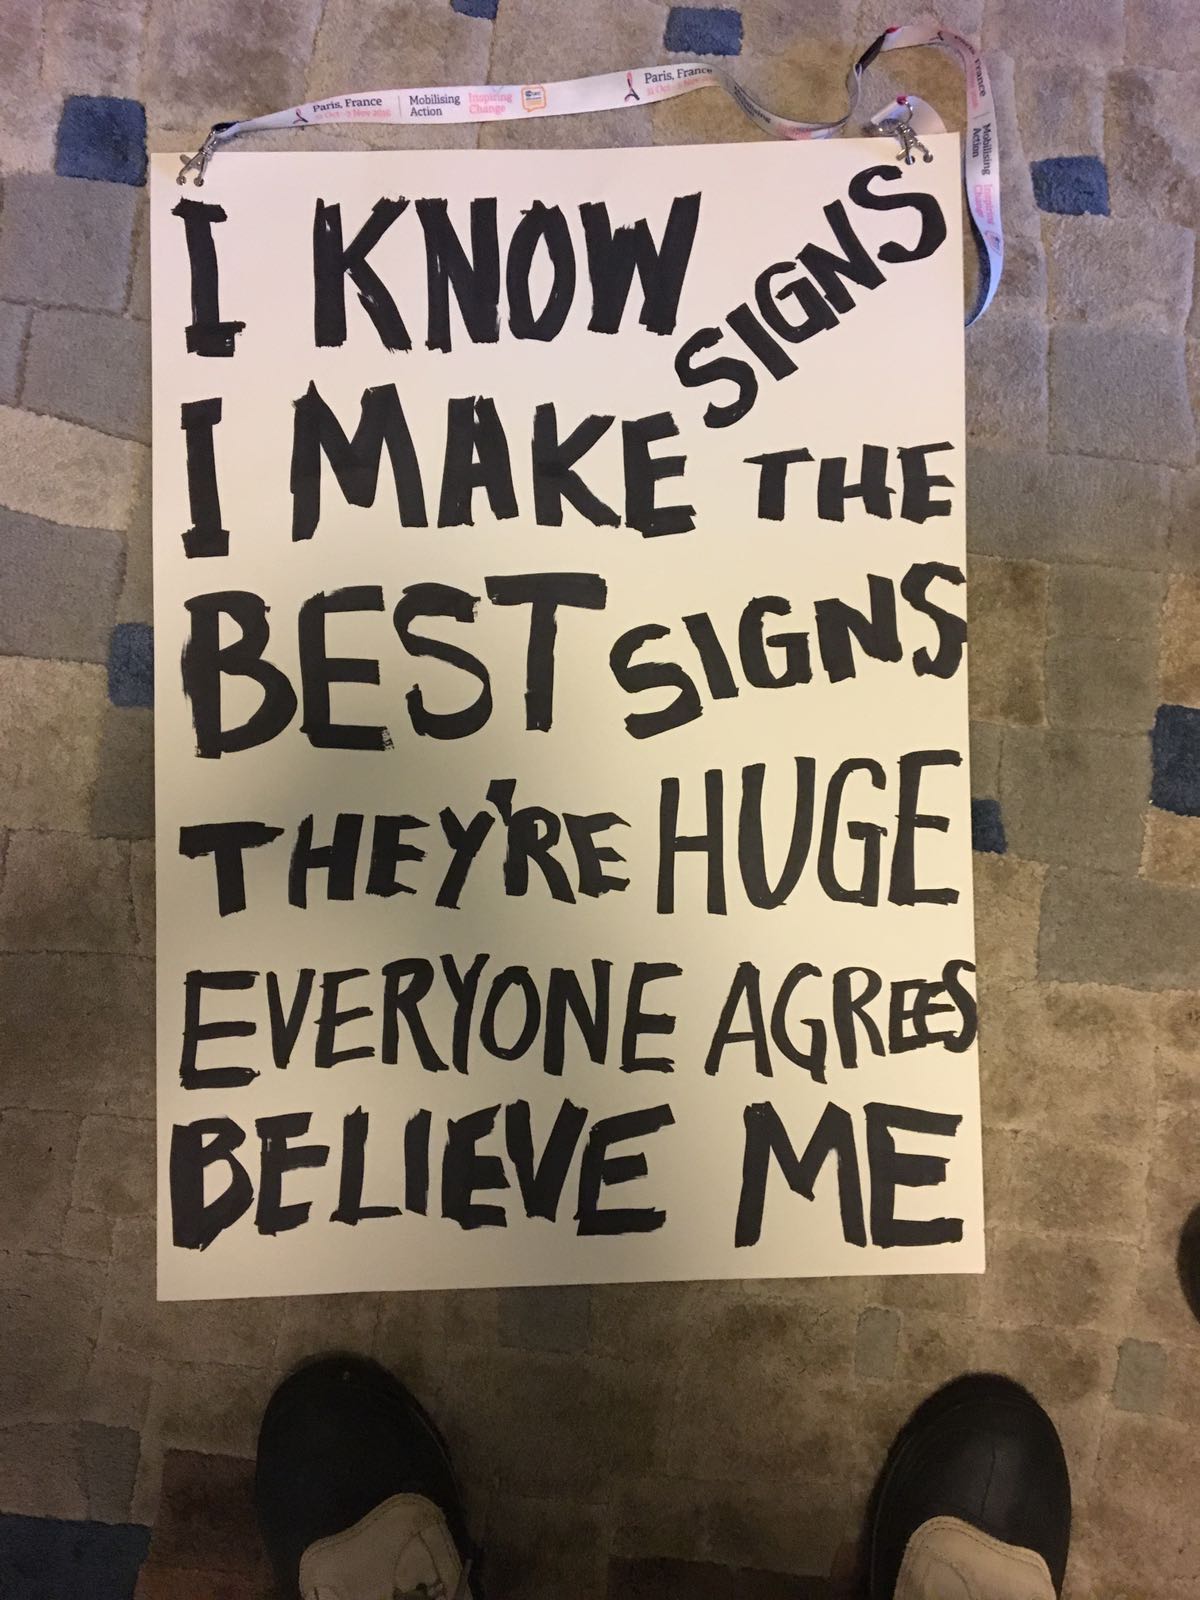 Paris, France
31 Oct - 2 Nov 2016
Mobilising
Action
Inspiring
Change
Paris, France
31 Oct - 2 Nov
France
Mobilising
Action
Inspiring
Change
I KNOW SIGNS
I MAKE THE
BEST SIGNS
THEY'RE HUGE
EVERYONE AGREES
BELIEVE ME